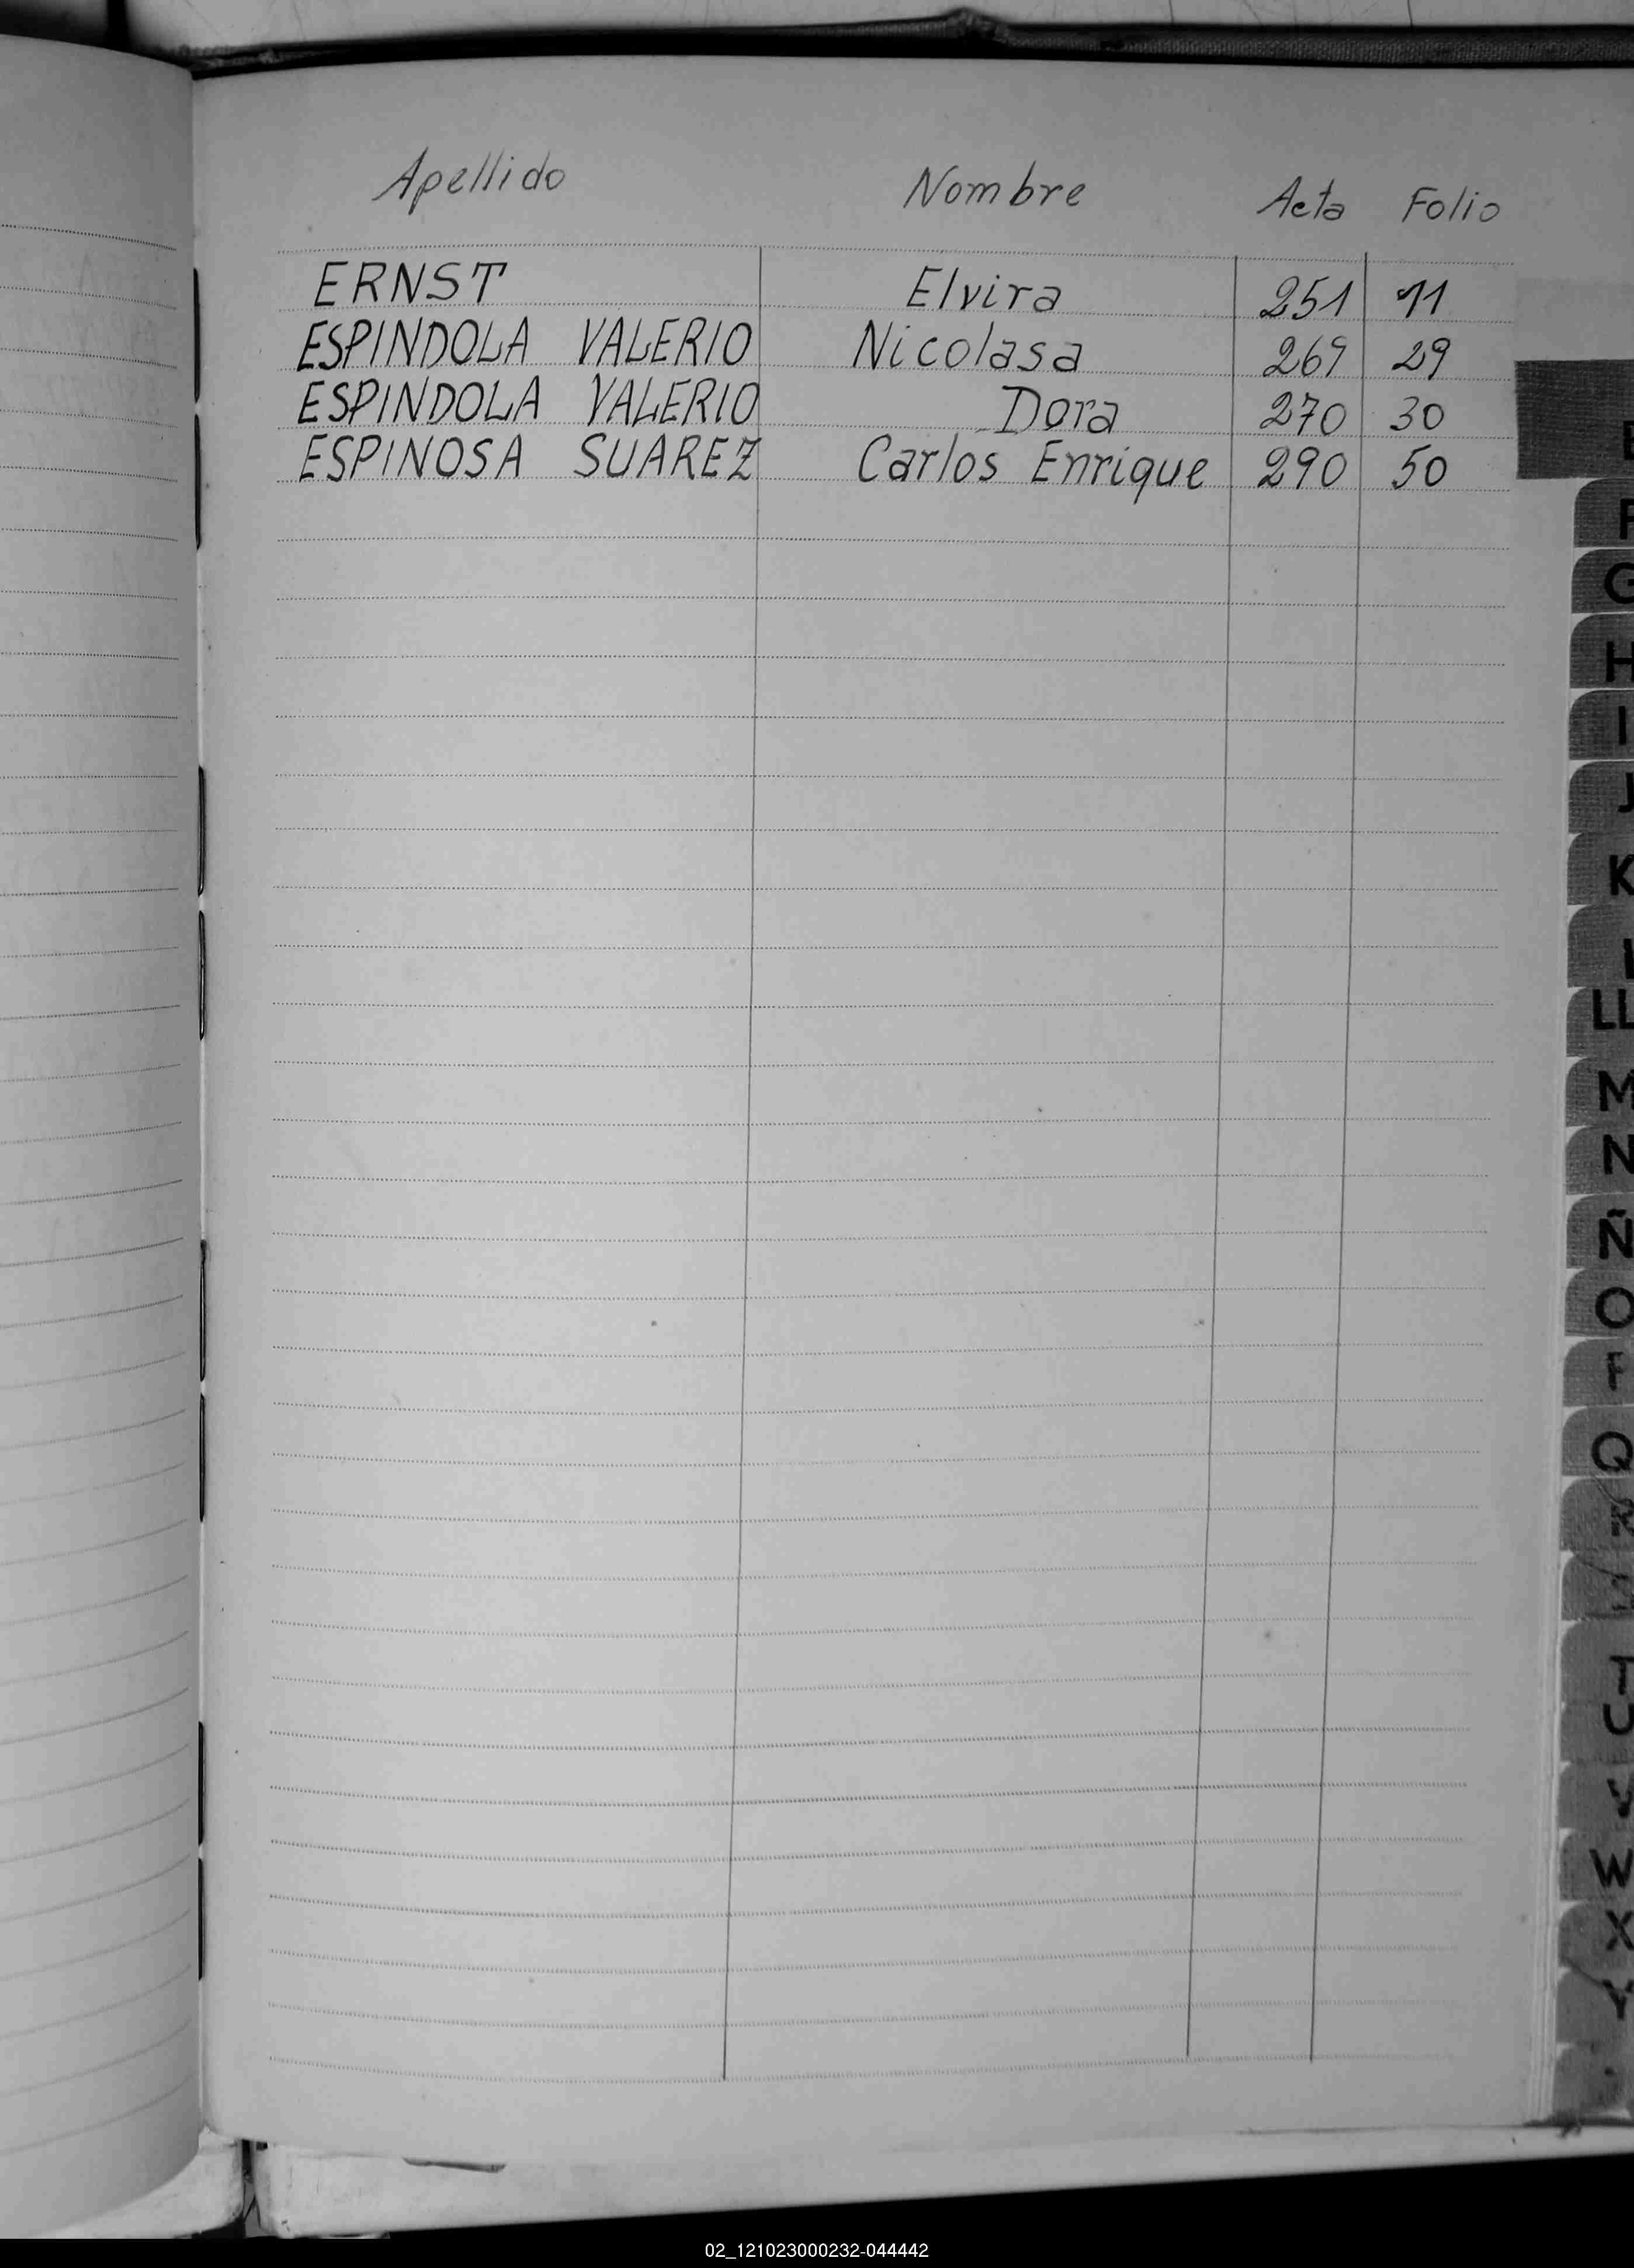 Apellido Nombre Acta Folio
ERNST Elvira 251 11
ESPINDOLA VALERIO Nicolasa 269 29
ESPINDOLA VALERIO Dora 270 30
ESPINOSA SUAREZ Carlos Enrique 290 50
E
F
G
H
I
J
K
L
LL
M
N
Ñ
O
P
Q
R
T
U
V
W
X
Y
02_121023000232-044442